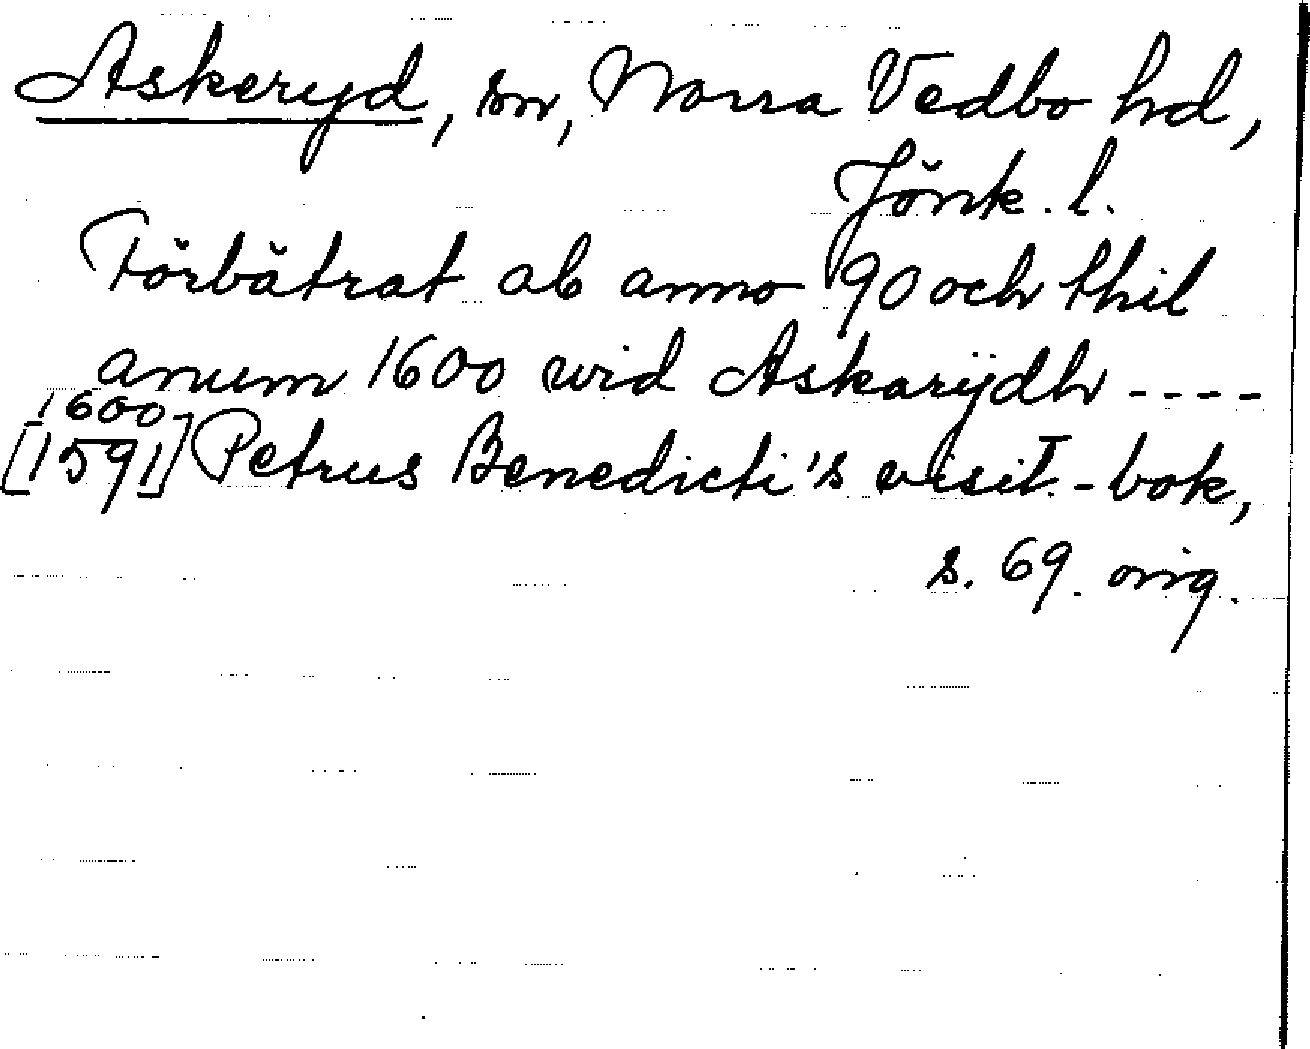 Askeryd, sn, Norra Vedbo hd,
Jönk. l.
Förbätrat ab anno 90 och thil
anum 1600 wid Askarÿdh ----
1600
[1591] Petrus Benedicti's visit.-bok,
s. 69. orig.